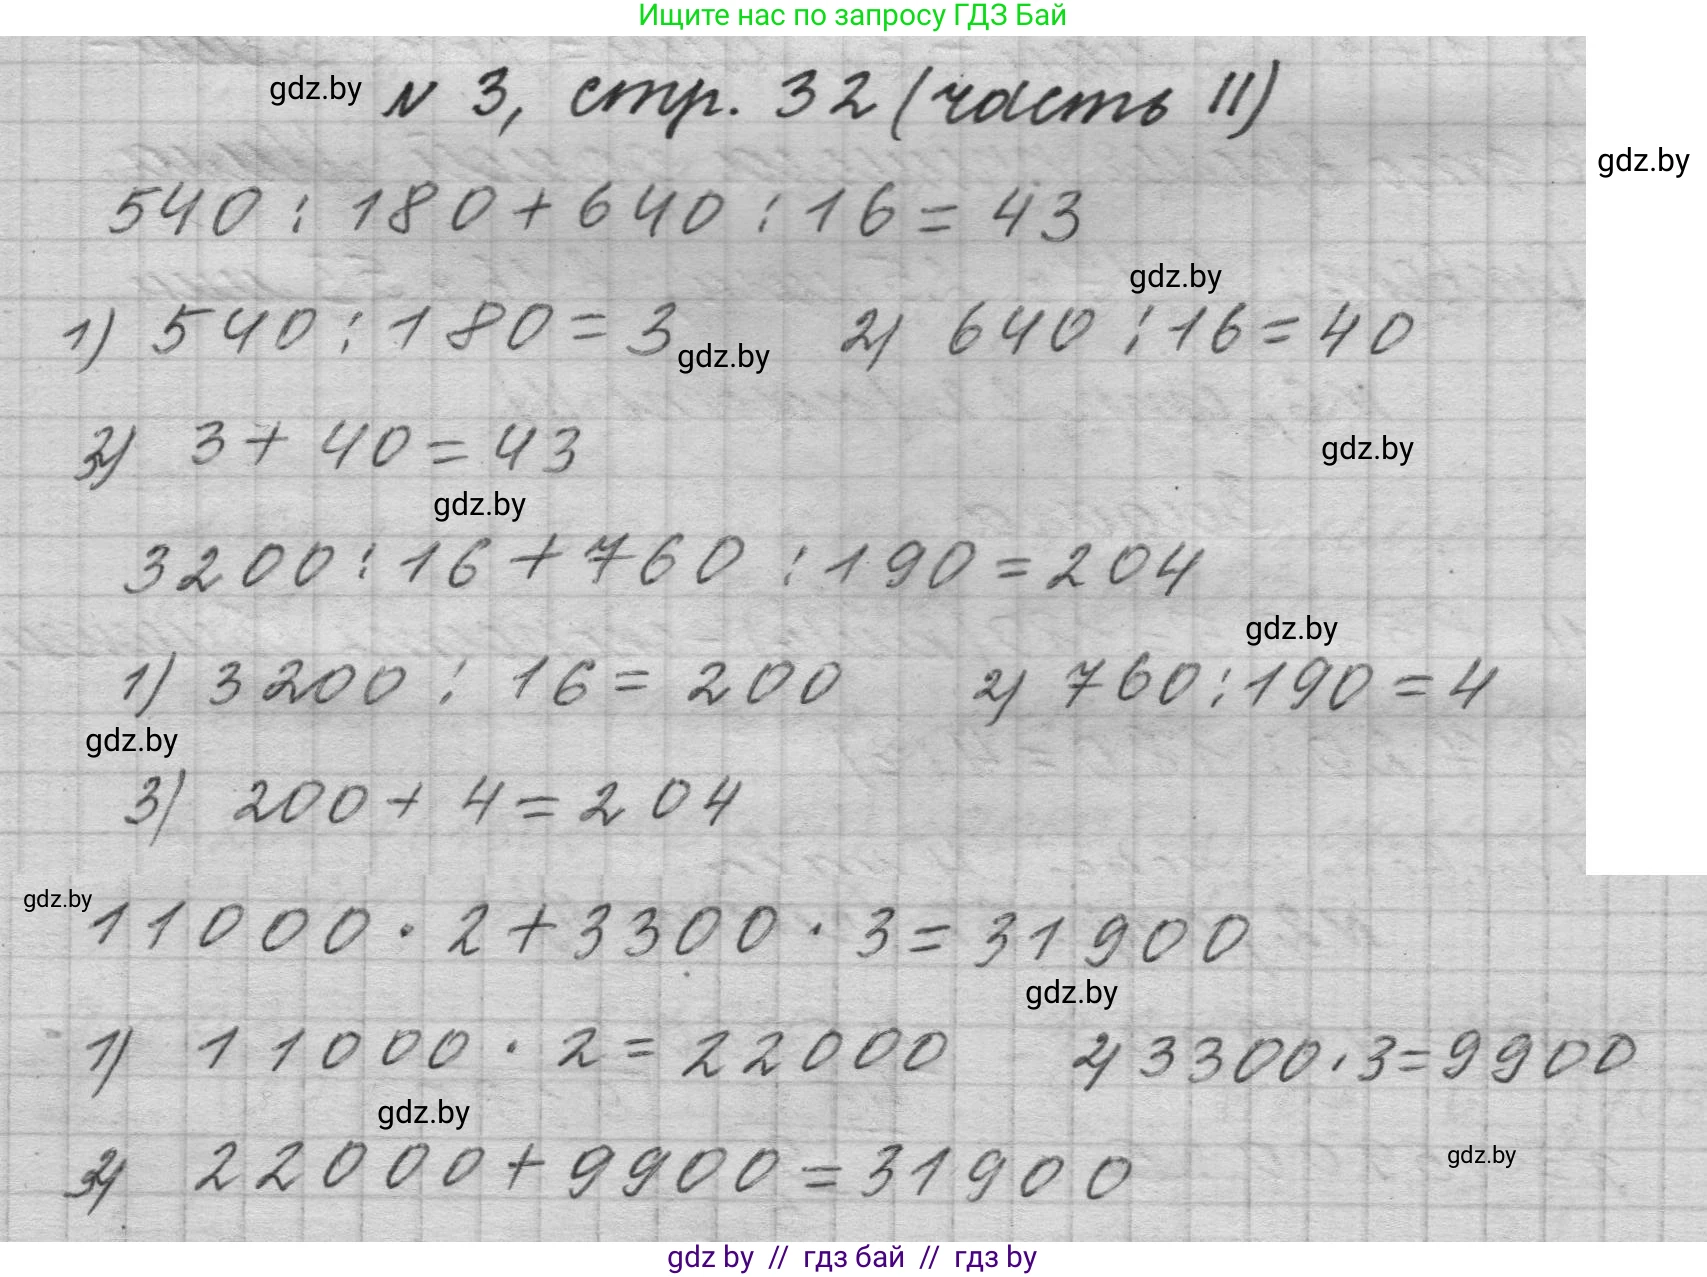 Ищите нас по запросу ГДЗ Бай
gdz.by № 3, стр. 32 (часть II)
gdz.by
540 : 180 + 640 : 16 = 43
gdz.by
1) 540 : 180 = 3 2) 640 : 16 = 40
gdz.by
3) 3 + 40 = 43
gdz.by
gdz.by
3200 : 16 + 760 : 190 = 204
gdz.by
1) 3200 : 16 = 200 2) 760 : 190 = 4
gdz.by
3) 200 + 4 = 204
gdz.by
11000 · 2 + 3300 · 3 = 31900
gdz.by
1) 11000 · 2 = 22000 2) 3300 · 3 = 9900
gdz.by
3) 22000 + 9900 = 31900
gdz.by
gdz by // гдз бай // гдз by